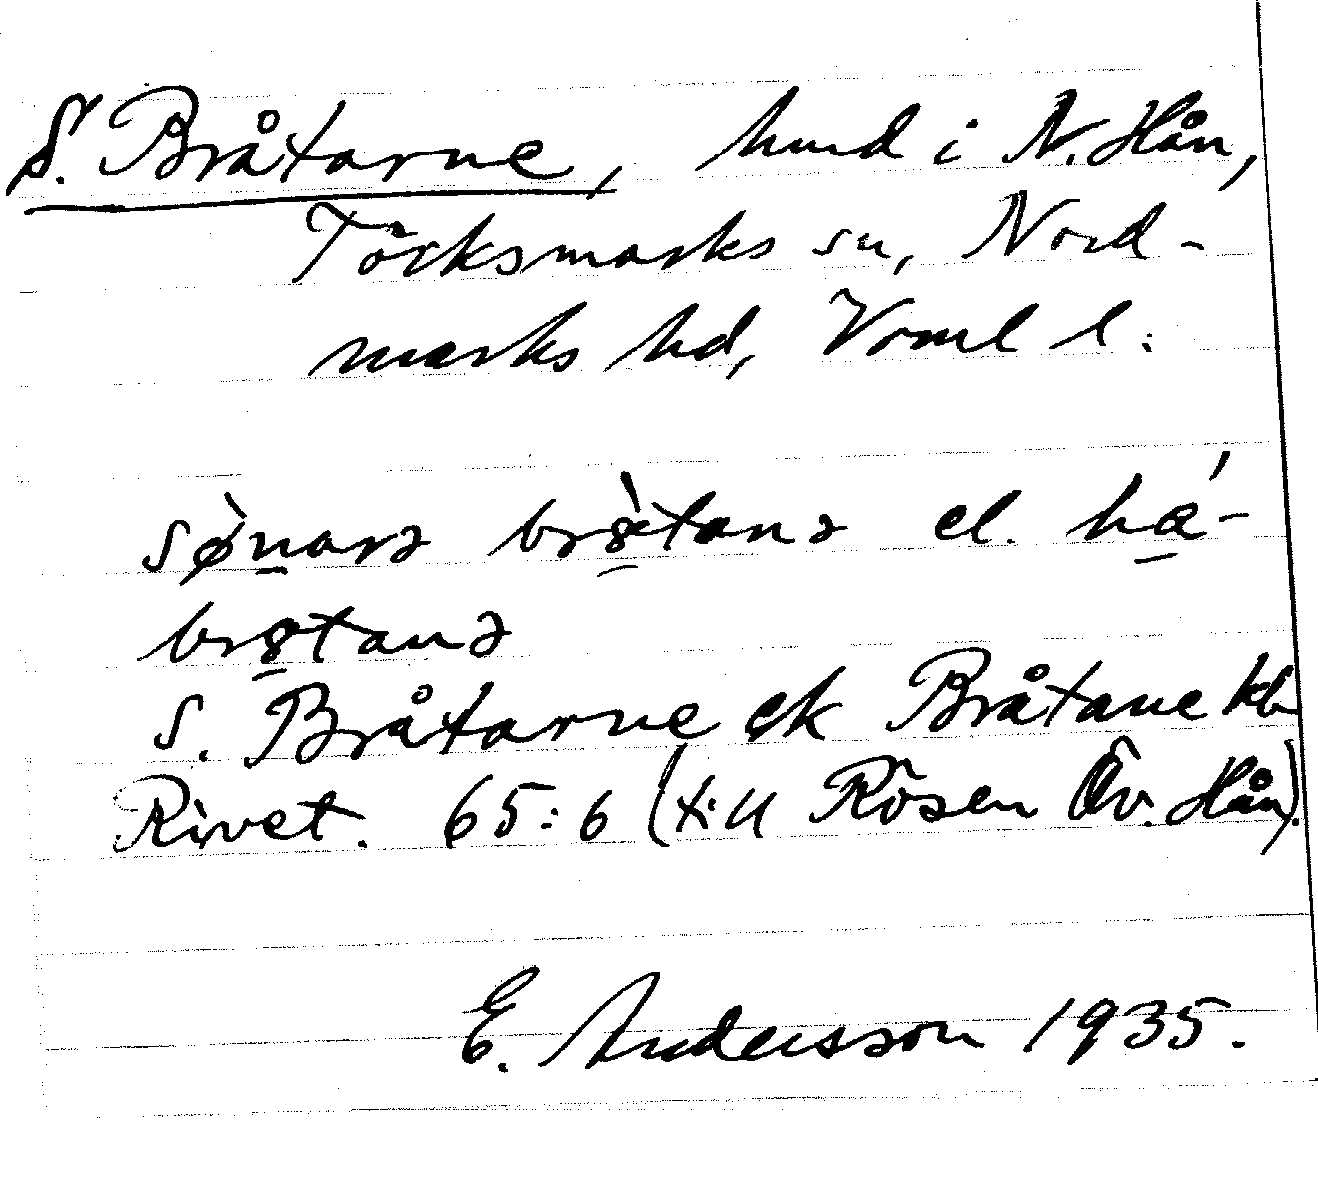 S. Bråtarne, hmd i N. Hån,
Törksmarks sn, Nord-
marks hd, Vrml l.
sø̀narə br8̀tanə el. há-
br8tanə
S. Bråtarne ek Bråtane kb
Rivet. 65:6 (t.ll Rösen Öv. Hån).
E. Andersson 1935.